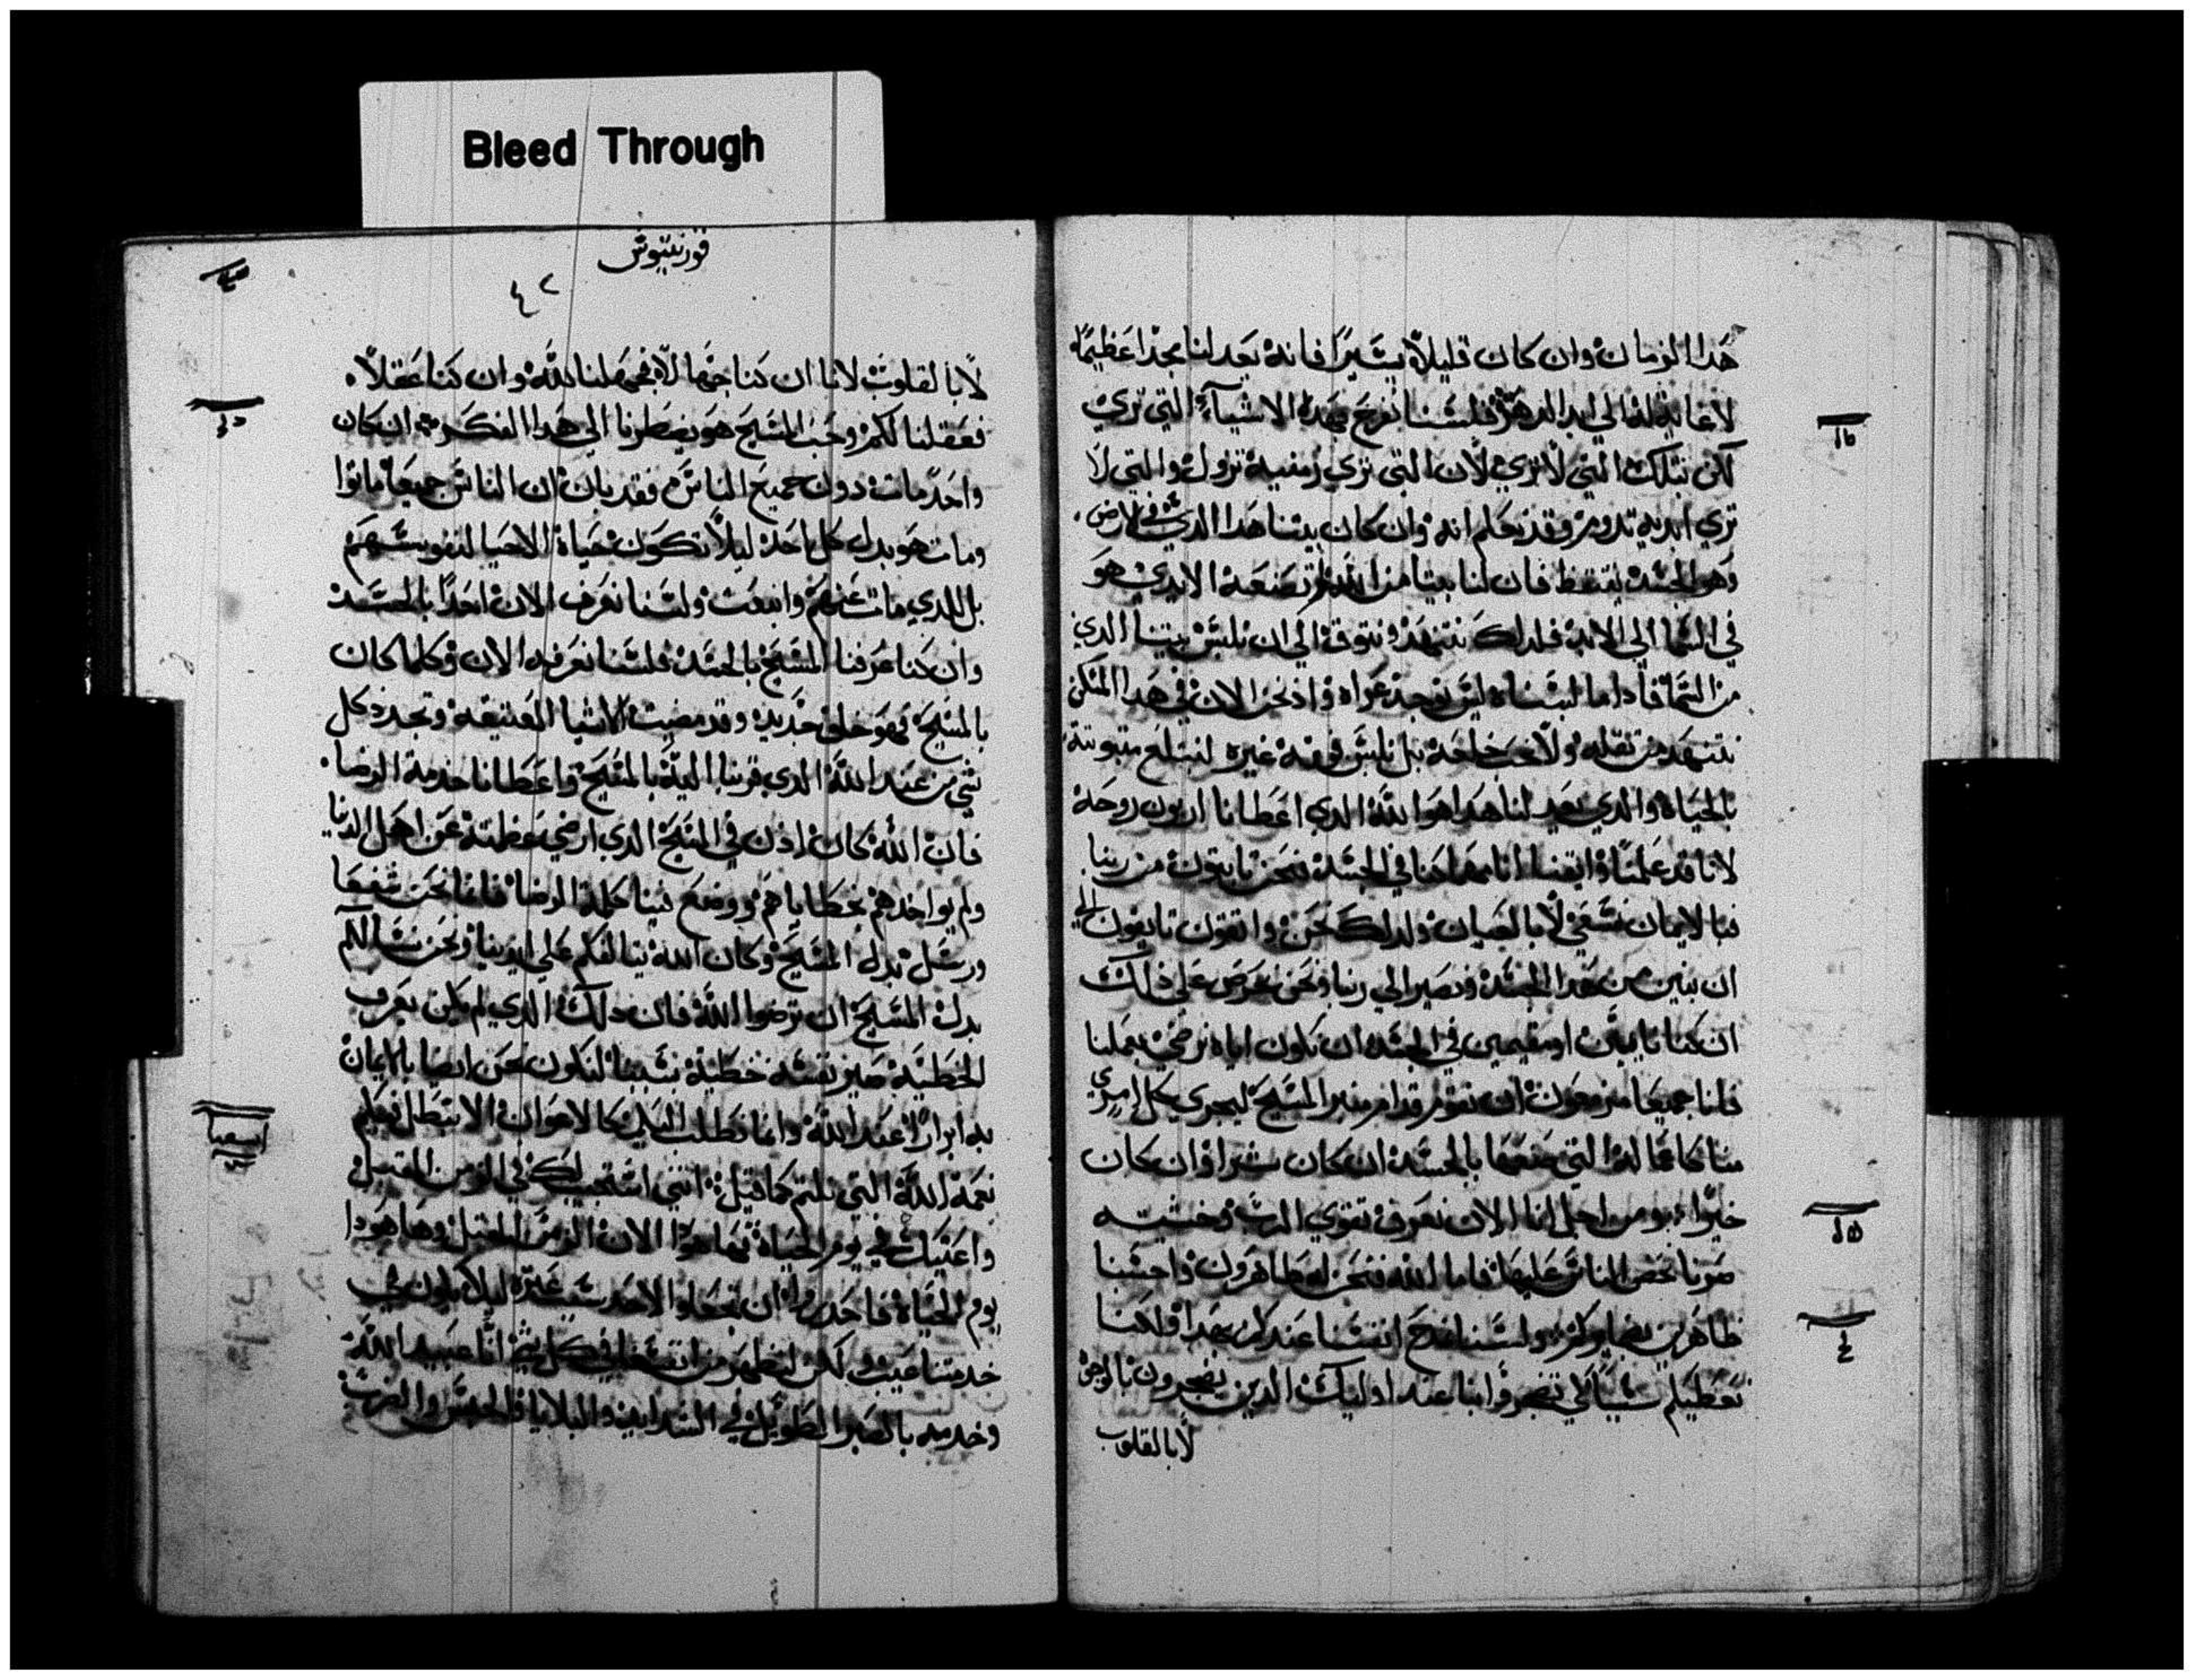 Bleed Through
هدا الزمان وان كان قليلاً يسيراً فانه يعد لنا مجداً عظيماً
لا غاية له الي ابد الدهر فلسنا نفرح بهده الاشياء التي تري
لكن بتلك التي لا تري لان التي تري زمنية تزول والتي لا
تري ابدية تدوم وقد نعلم انه وان كان بيتنا هدا الدي في الارض
وهو الجسد ينتقظ فان لنا بيتا من الله لم تصنعه الايدي هو
في السما الي الابد فلدلك نتنهد ونتوق الي ان نلبس بيتنا الدي
من السما فاداما لبسناه ليس نوجد عراه واد نحن الان في هدا المسكن
نتنهد من تقله ولا نحب خلعه بل نلبس فوقه غيره لتبتلع ميتوتته
بالحياه والدي يعد لنا هدا هو الله الدي اعطانا اربون روحه
لانا قد علمنا وايقنا انا مهما كنا في الجسد فنحن نايون من ربنا
فبالايمان نسعي لا بالعيان ولدلك نحن واتقون تايقون الي
ان نبين من هدا الجسد ونصير الي ربنا ونحن نحرص علي دلك
ان كنا نايين او مقيمين في الجسد ان نكون اياه نرضي بعملنا
فانا جميعا مزمعون ان نقوم قدام منبر المسيح ليجزي كل امري
منا كاعماله التي صنعها بالجسد ان كان شرا وان كان
خيرا ومن اجل انا الان نعرف تقوي الرب وخشيته
صرنا نحض الناس عليها فاما الله فنحن له ظاهرون واحسبنا
ظاهرين لضمايركم ولسنا نمدح انفسنا عندكم بهدا ولكنا
نعطيكم سبباً لكي تفخروا بنا عند اوليك الدين يفخرون بالوجوه
لا بالقلوب
قورنتيوش
٤٢
لا بالقلوب لانا ان كنا جهالا فجهلنا لله وان كنا عقلاً
فعقلنا لكم وحب المسيح هو يضطرنا الي هدا الفكر ان كان
واحد مات دون جميع الناس فقد بان ان الناس جميعا ماتوا
ومات هو بدل كل احد ليلا تكون حياة الاحيا لنفوسهم
بل للدي مات عنهم وانبعت ولسنا نعرف الان احداً بالجسد
وان كنا عرفنا المسيح بالجسد فلسنا نعرفه الان وكلما كان
بالمسيح فهو خلق جديد وقد مضيت الاشيا العتيقه وتجدد كل
شي من عند الله الدي قربنا اليه بالمسيح واعطانا خدمة الرضا
فان الله كان ادن في المسيح الدي ارضي عظمته عن اهل الدنيا
ولم يواخدهم بخطاياهم ووضع فينا كلمة الرضا فانما نحن شفعا
ورسل بدل المسيح وكان الله يسالكم علي ايدينا ونحن نسالكم
بدل المسيح ان ترضوا الله فان دلك الدي لم يكن يعرف
الخطية صير نفسه خطية بسببنا لنكون نحن ايضا بالايمان
به ابراراً عند الله وانما نطلب اليكم كالاعوان الا تبطل فيكم
نعمة الله التي نلتم كما قيل انني استجيب لك في الزمن المقبول
واعنتك في يوم الحياة فها هودا الان الزمن المقبل وها هودا
يوم الحياة فاحدروا ان تجعلوا لاحد سبب عترة ليلا يكون في
خدمتنا عيب لكن لنظهر من انفسنا في كل شي انا عبيد الله
وخدمه بالصبر الطويل في الشدايد والبلايا والحبس والضرب
اشعيا